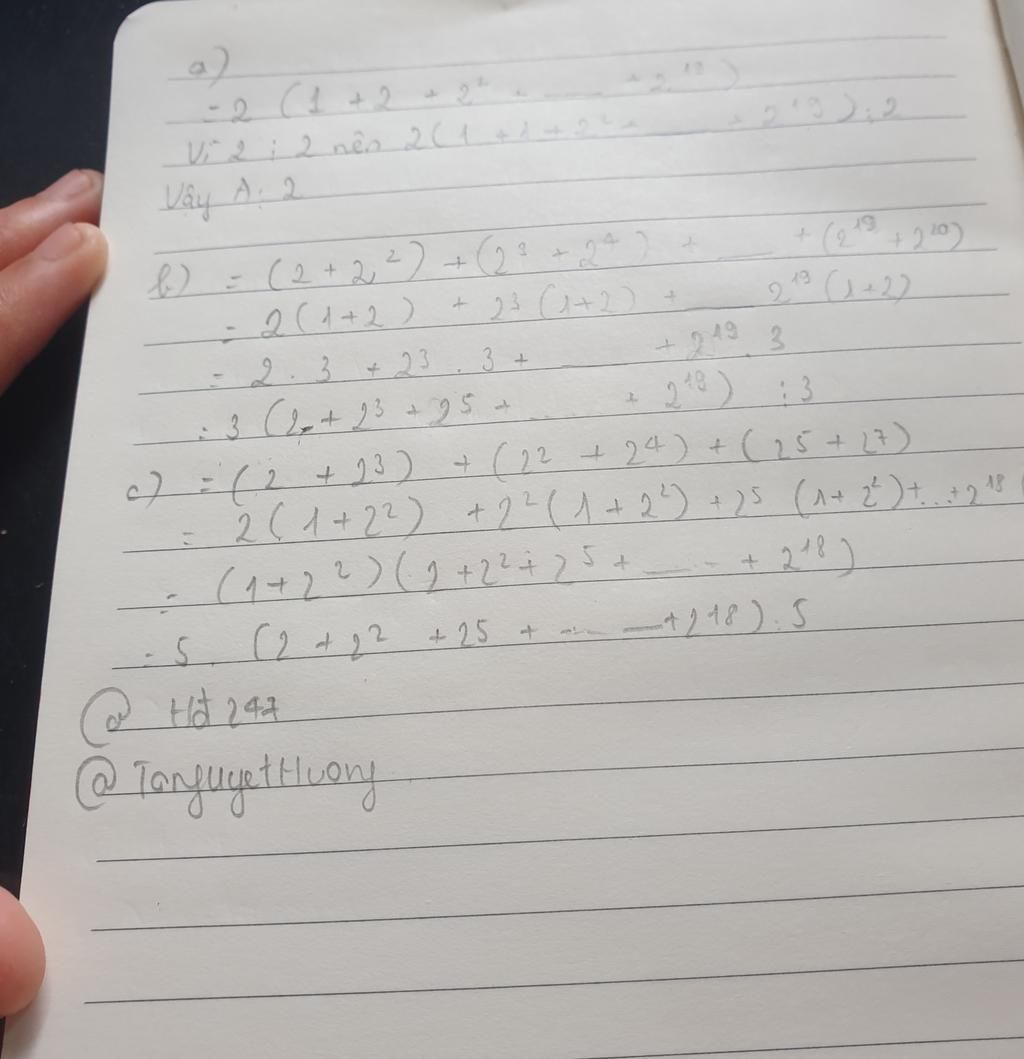 a)
= 2 (1 + 2 + 2² + ... + 2¹⁹)
Vì 2 ⋮ 2 nên 2(1 + 1 + 2² + ... + 2¹⁹) ⋮ 2
Vậy A ⋮ 2
b) = (2 + 2²) + (2³ + 2⁴) + ... + (2¹⁹ + 2²⁰)
= 2(1+2) + 2³(1+2) + ... 2¹⁹(1+2)
= 2 . 3 + 2³ . 3 + ... + 2¹⁹ . 3
= 3 (2 + 2³ + 2⁵ + ... + 2¹⁹) ⋮ 3
c) = (2 + 2³) + (2² + 2⁴) + (2⁵ + 2⁷)
= 2(1+2²) + 2²(1+2²) + 2⁵ (1+2²) + ... + 2¹⁸ (
= (1+2²)(2+2²+2⁵+ ... + 2¹⁸)
= 5 . (2 + 2² + 25 + ... + 2¹⁸) ⋮ 5
@ Hđ 247
@ TanguyetHuong